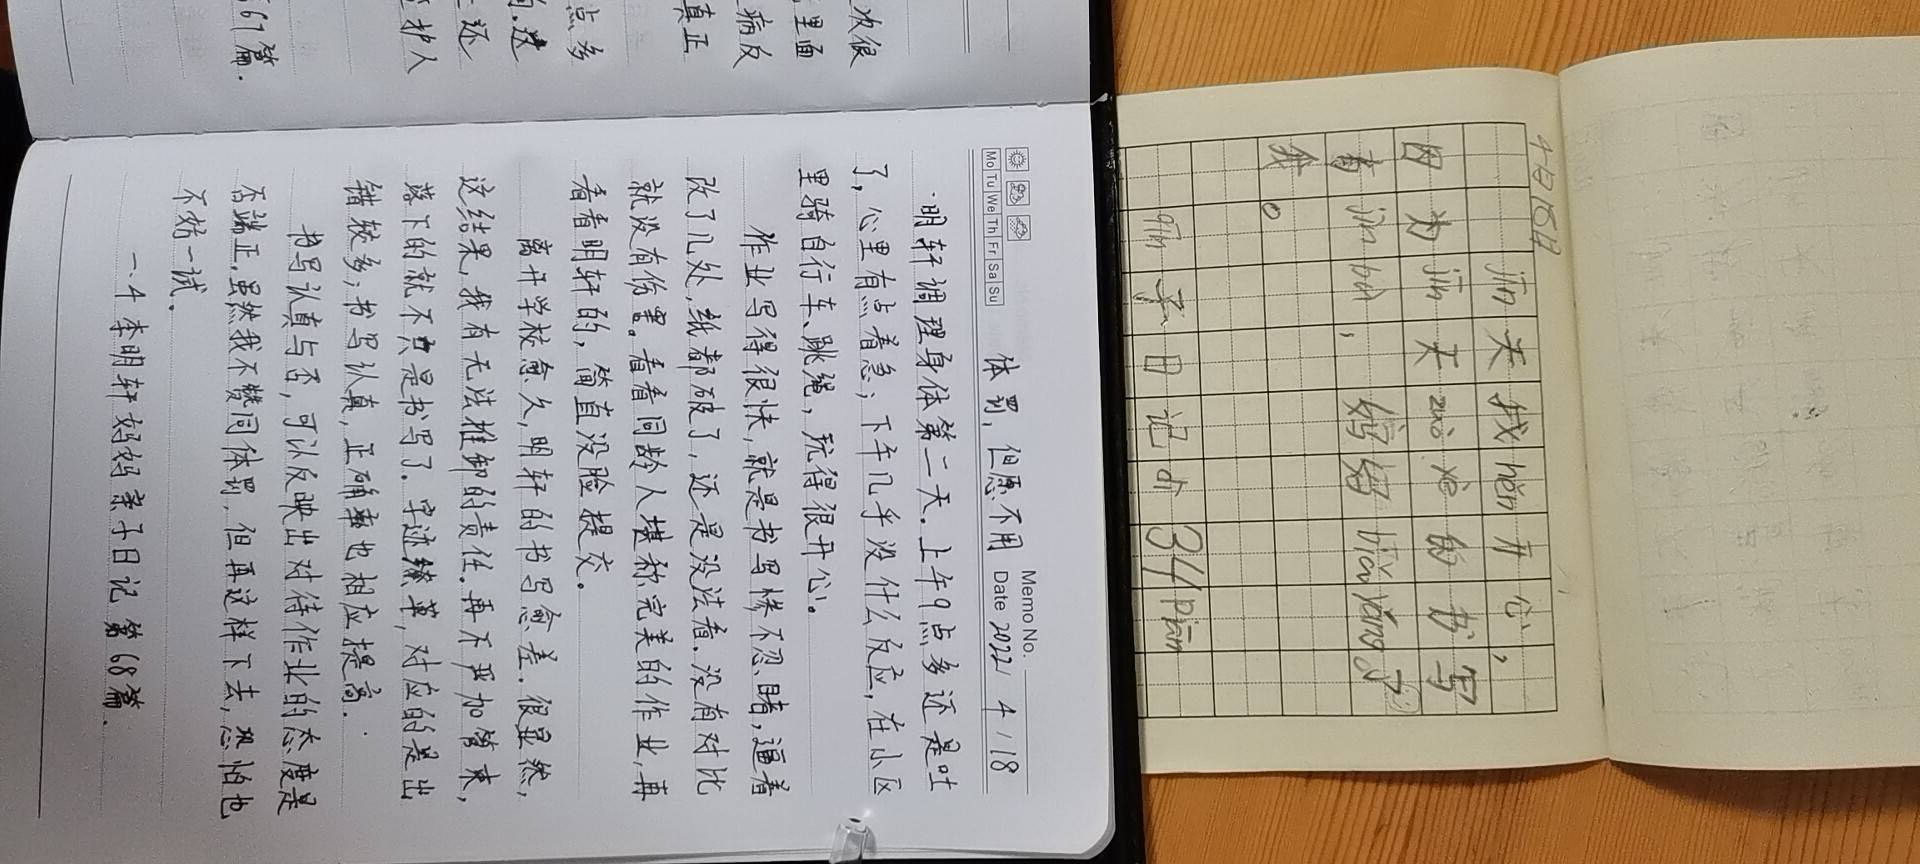 次很
里面
病反
真正
点多
的.这
还
护人
67篇.
Memo No.
Mo Tu We Th Fr Sa Su
Date 2022 / 4 / 18
体罚，但愿不用
明轩调理身体第二天.上午9点多还是吐
了，心里有点着急；下午几乎没什么反应，在小区
里骑自行车、跳绳，玩得很开心。
作业写得很快，就是书写惨不忍睹，逼着
改了几处，纸都破了，还是没法看.没有对比
就没有伤害。看看同龄人堪称完美的作业，再
看看明轩的，简直没脸提交。
离开学校愈久，明轩的书写愈差.很显然，
这结果，我有无法推卸的责任.再不严加管束，
落下的就不只是书写了.字迹缭草，对应的是出
错较多；书写认真，正确率也相应提高.
书写认真与否，可以反映出对待作业的态度是
否端正.虽然我不赞同体罚，但再这样下去，恐怕也
不妨一试.
一.4 李明轩妈妈亲子日记第68篇.
4月18日
jīn天我hěn开心，
因为jīn天zuò yè的书写
有jìn bù，妈妈biǎo yáng了
我。
qīn子日记 34 piān